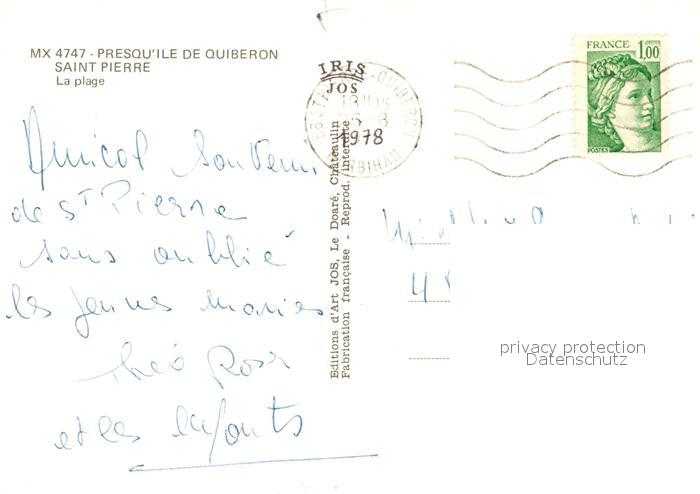 MX 4747 - PRESQU'ILE DE QUIBERON
SAINT PIERRE
La plage
IRIS
JOS
FRANCE
1,00
POSTES
18H15
QUIBERON
-8
1978
MORBIHAN
Amical Souvenir
de St Pierre
sans oublié
les jeunes mariés
Théo Rosa
et les enfants
Editions d'Art JOS, Le Doaré, Châteaulin
Fabrication française - Reprod. interdite
privacy protection
Datenschutz